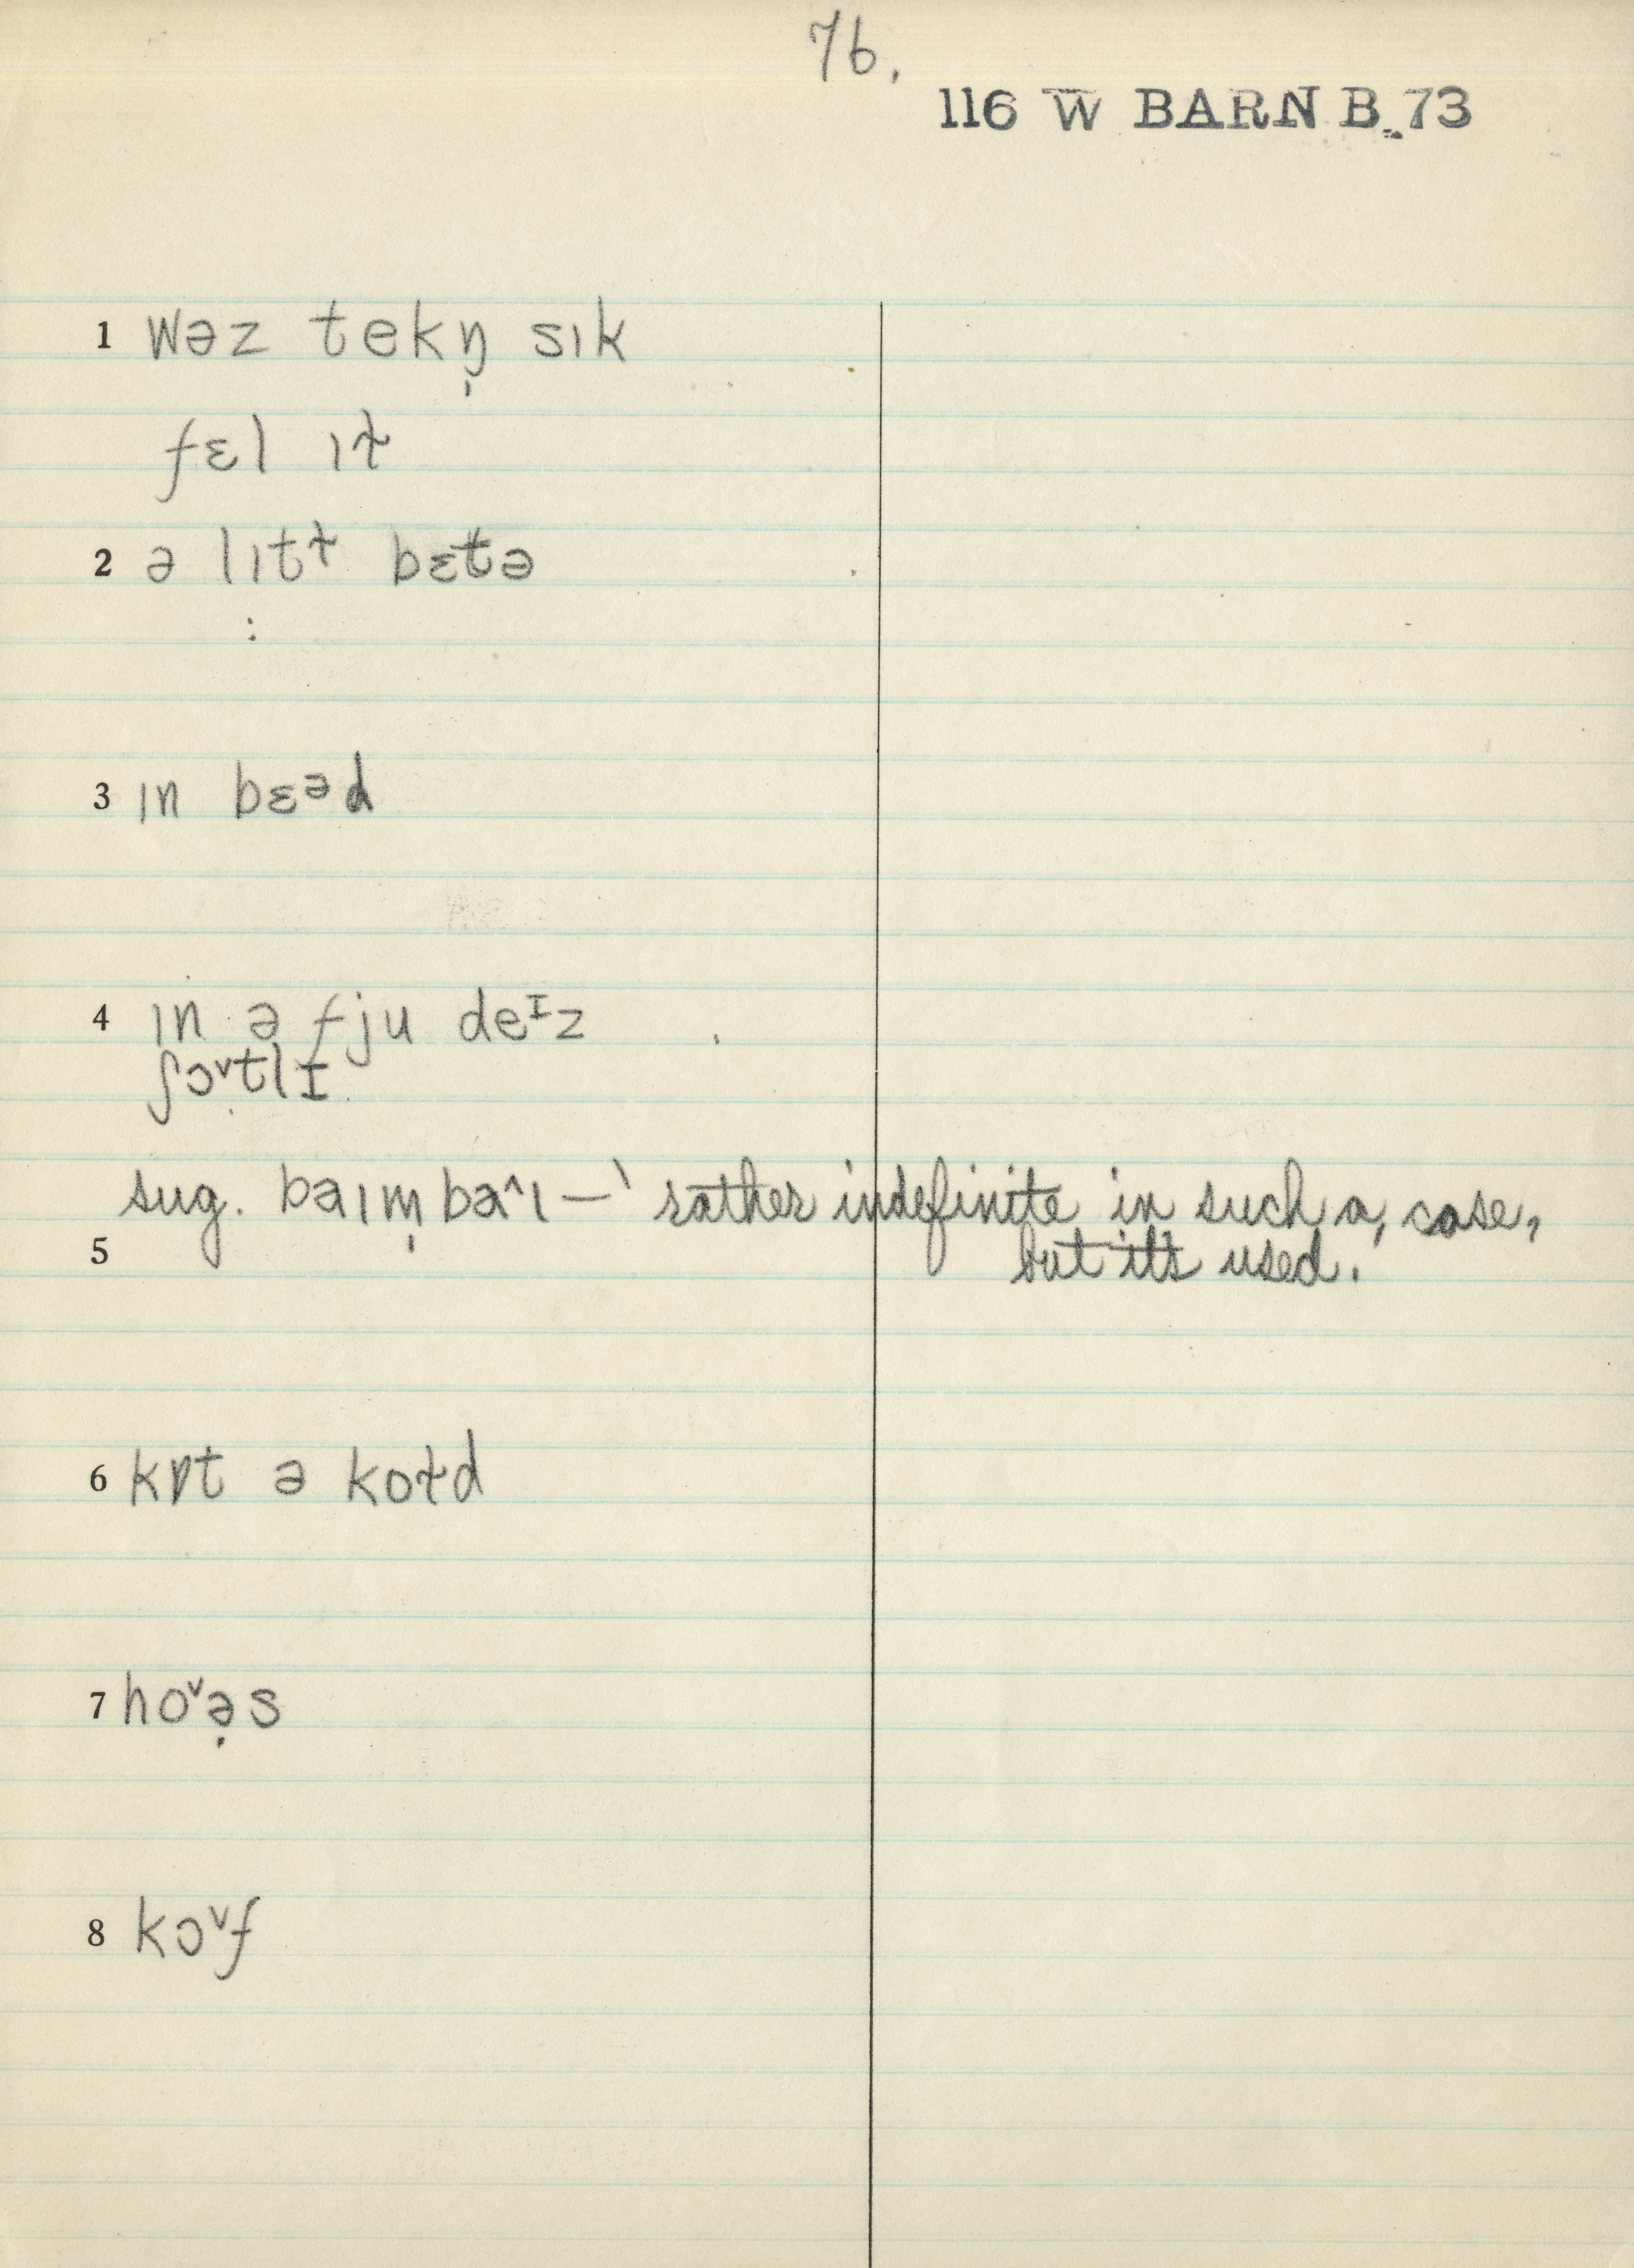 76.
116 W BARN B 73
1 wəz tekŋ̩ sɪk
fɛl ɪɫ
2 ə lɪtɫ bɛt̬ə
:
3 ɪn bɛᵊd
4 ɪn ə fju deᶦz
ʃɔˇtlɪ
sug. baɪm̩ baˆɪ – ' rather indefinite in such a, case,
5 but it's used.'
6 kɒt ə koɫd
7 hoˇə̣s
8 kɔˇf